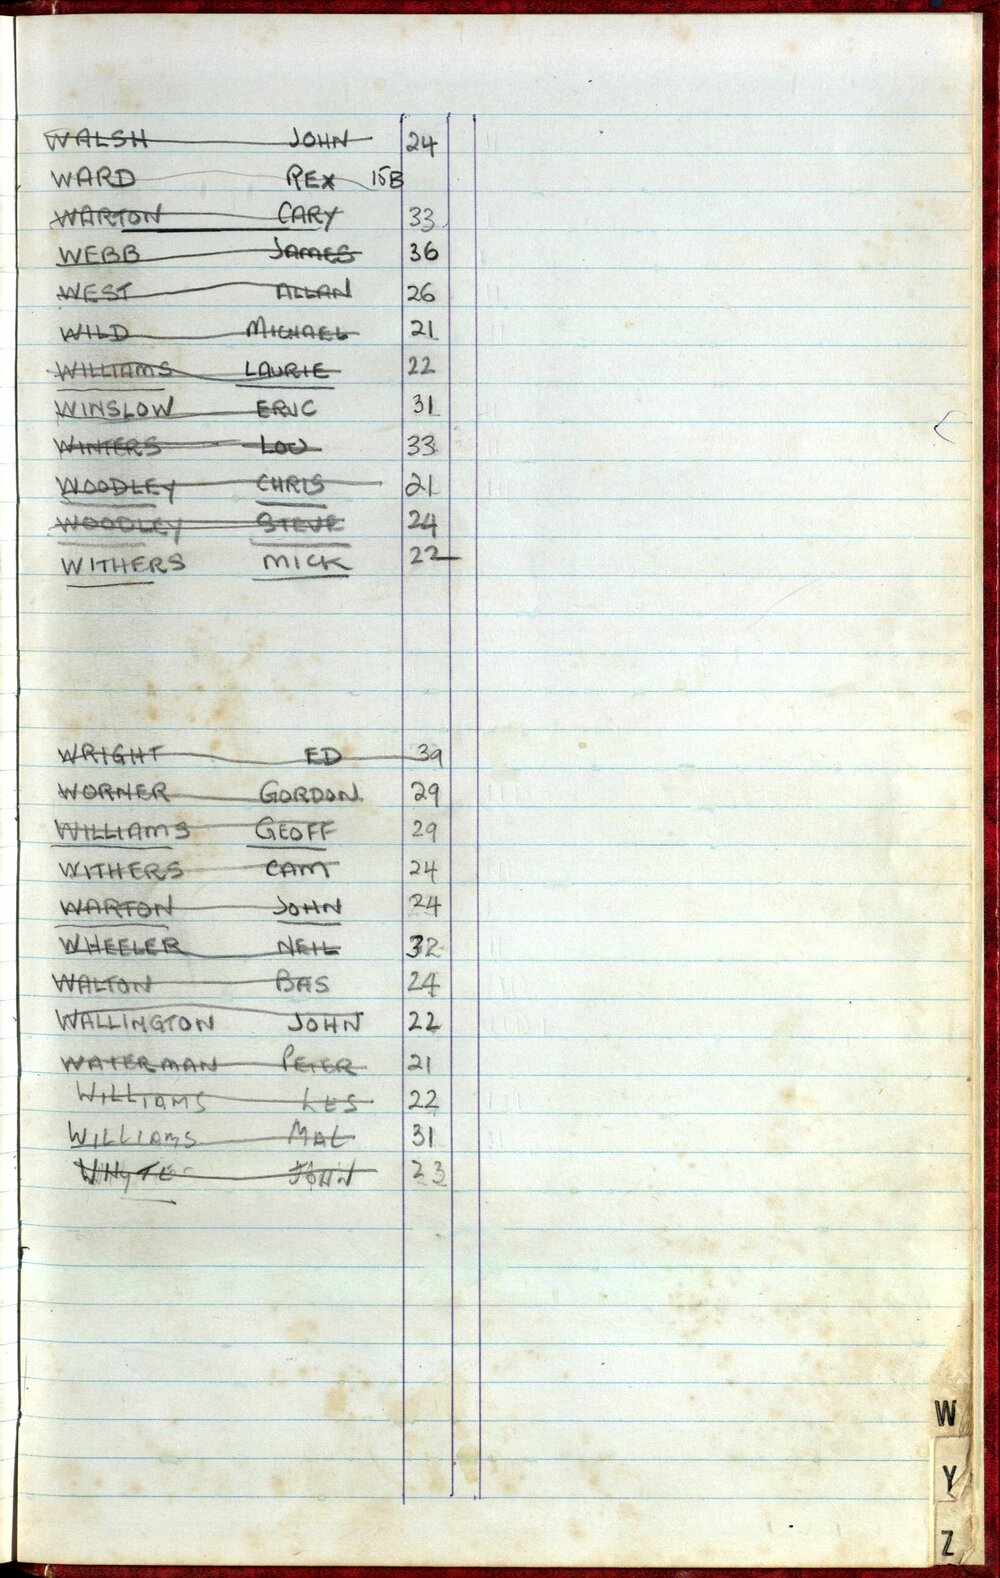 WALSH JOHN 24
WARD REX 15B
WARTON CARY 33
WEBB JAMES 36
WEST ALLAN 26
WILD MICHAEL 21
WILLIAMS LAURIE 22
WINSLOW ERIC 31
WINTERS LOU 33
WOODLEY CHRIS 21
WOODLEY STEVE 24
WITHERS MICK 22
WRIGHT ED 39
WORNER GORDON 29
WILLIAMS GEOFF 29
WITHERS CAM 24
WARTON JOHN 24
WHEELER NEIL 32
WALTON BAS 24
WALLINGTON JOHN 22
WATERMAN PETER 21
WILLIAMS LES 22
WILLIAMS MAL 31
WHYTE JOHN 23
W
Y
Z